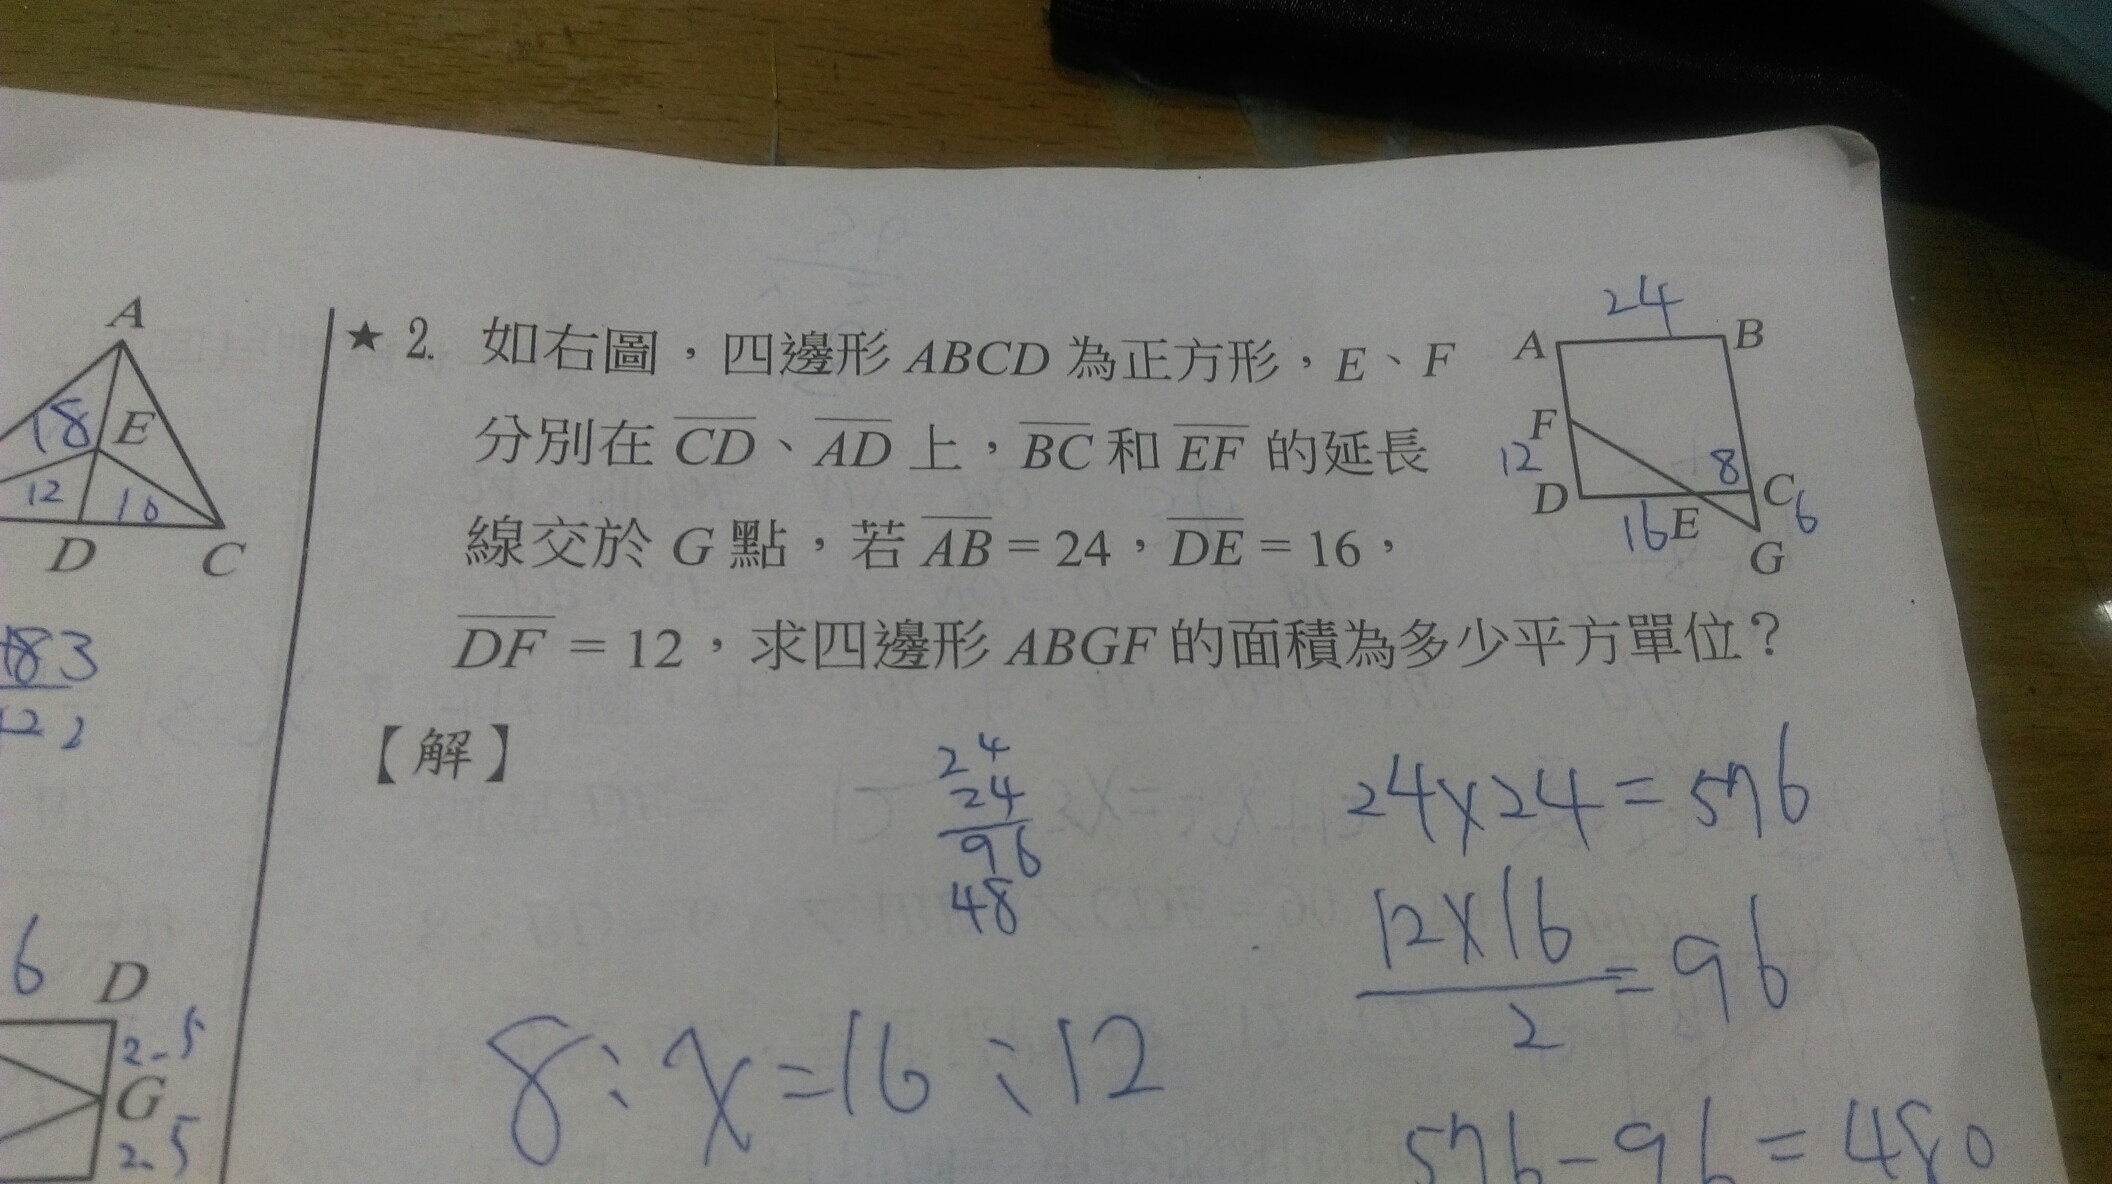 ★ 2. 如右圖，四邊形 ABCD 為正方形，E、F
分別在 CD、AD 上，BC 和 EF 的延長
線交於 G 點，若 AB = 24，DE = 16，
DF = 12，求四邊形 ABGF 的面積為多少平方單位？
【解】
24
A
B
F
12
8
D
C
6
16
E
G
24
24
96
48
24×24=576
12×16
2
=96
8:x=16:12
576-96=480
A
18
E
12
10
D
C
183
6
D
2.5
G
2.5